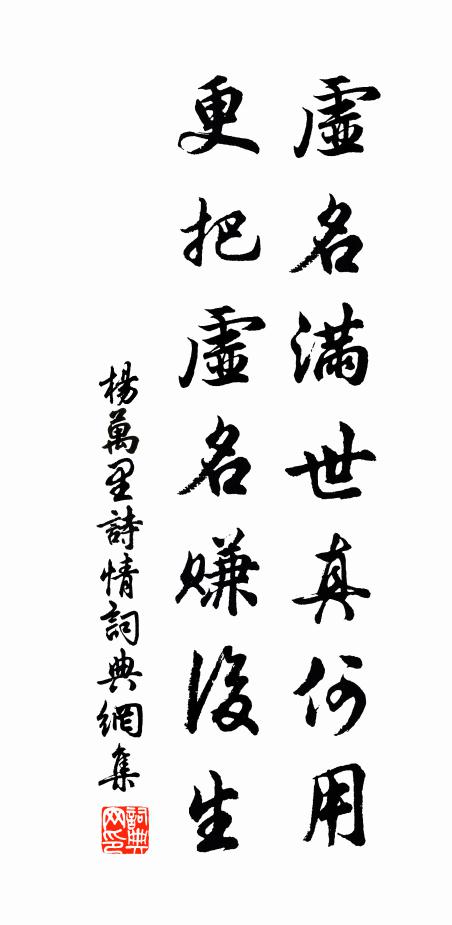 虛名滿世真何用
更把虛名賺後生
楊萬里詩情詞典網集
詞典網印